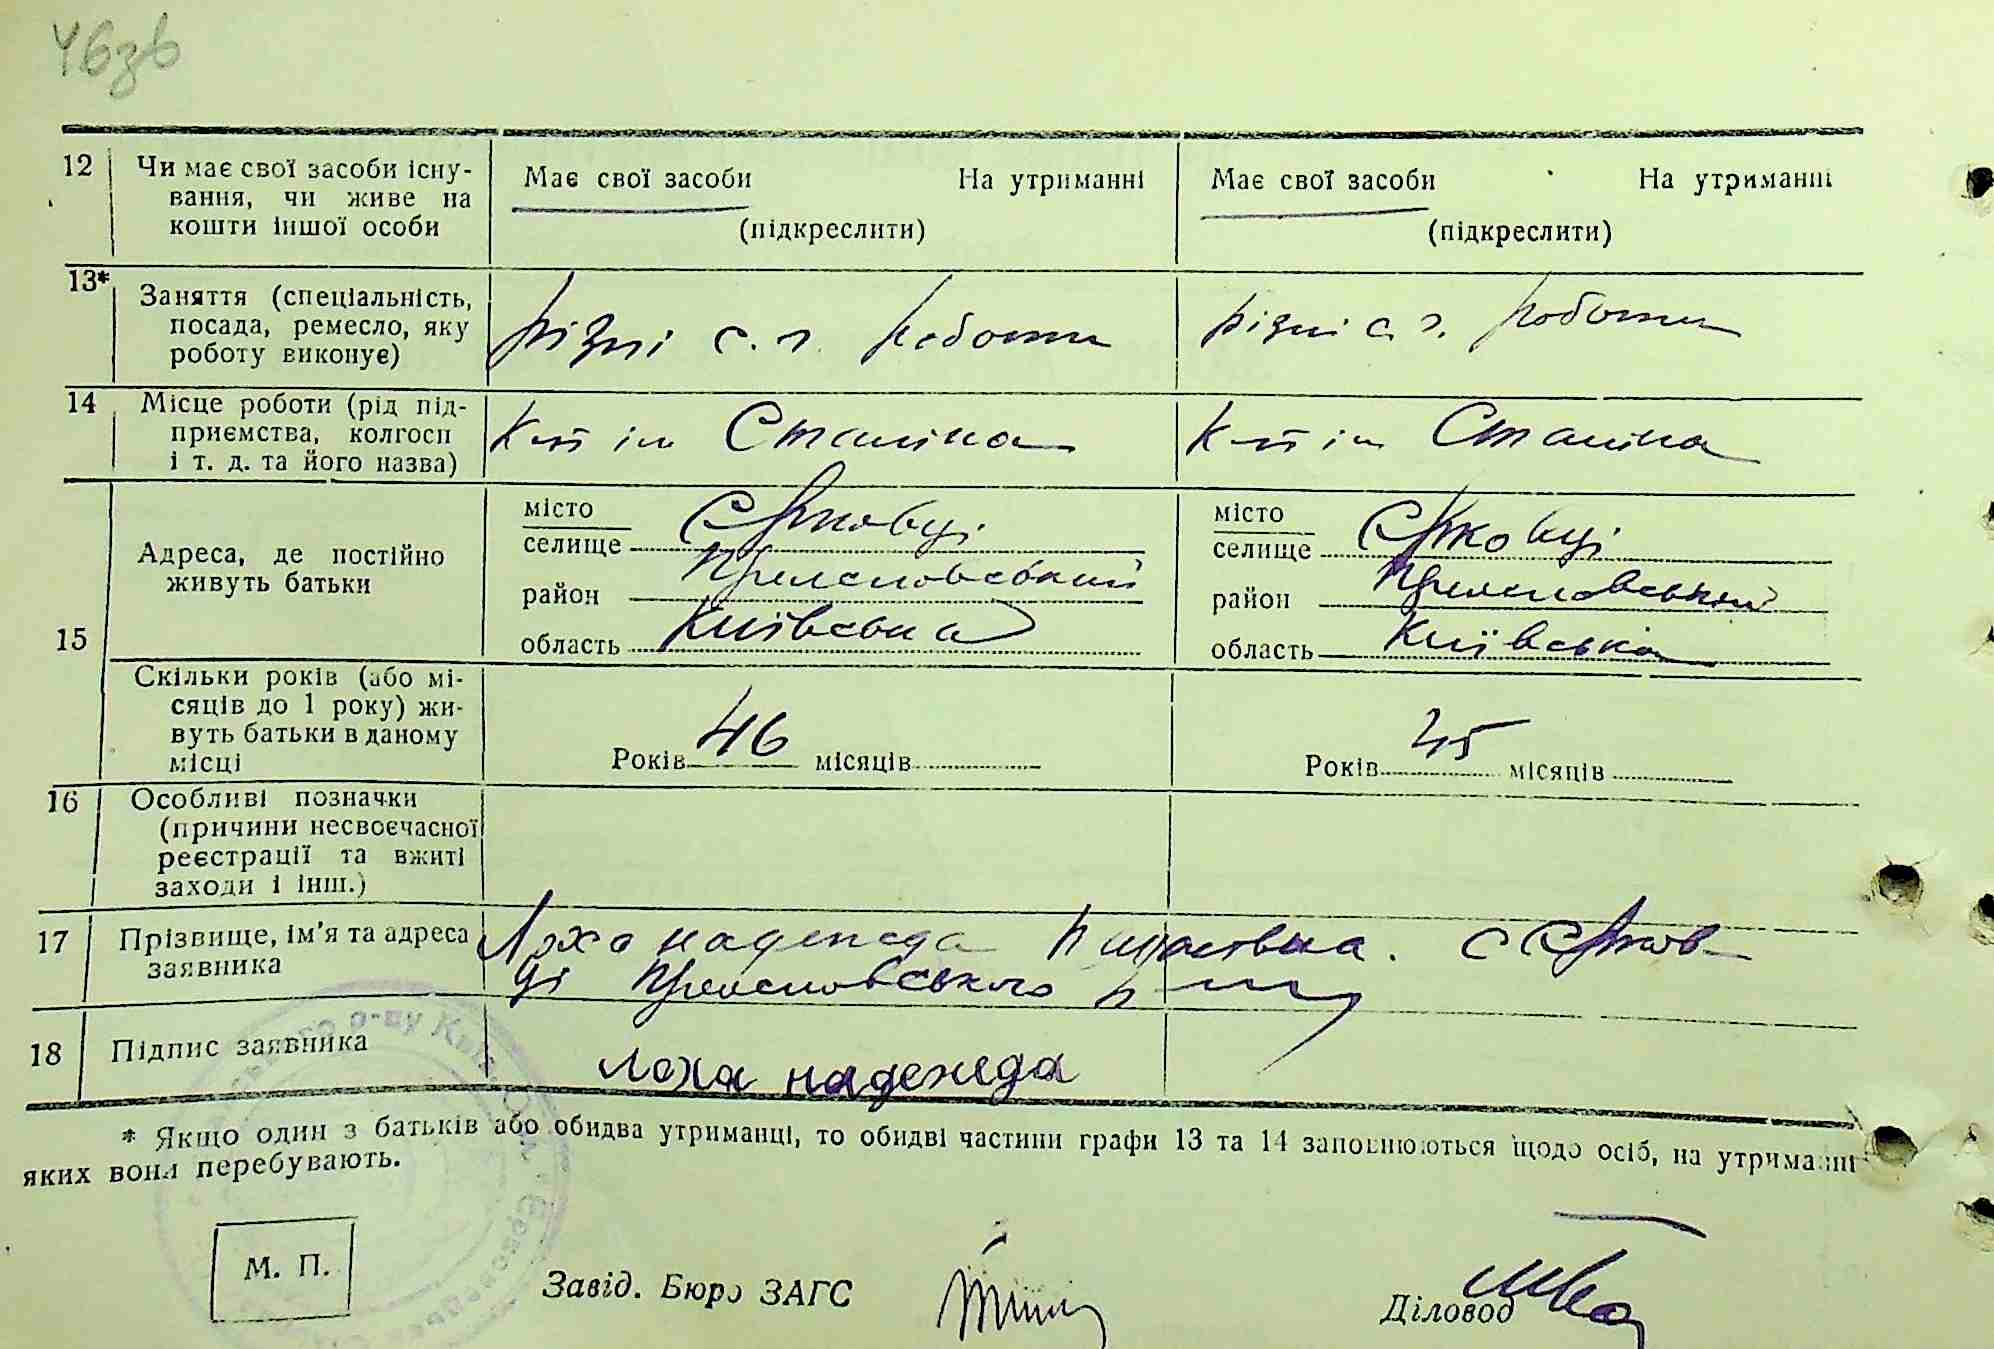 46зв
12 Чи має свої засоби існу-
вання, чи живе на
кошти іншої особи
Має свої засоби На утриманні
(підкреслити)
Має свої засоби На утриманні
(підкреслити)
13* Заняття (спеціальність,
посада, ремесло, яку
роботу виконує)
різні с. г. роботи
різні с. г. роботи
14 Місце роботи (рід під-
приємства, колгосп
і т. д. та його назва)
К-п ім Сталіна
К-п ім Сталіна
15 Адреса, де постійно
живуть батьки
місто
селище Єрковці
район
область Київська
місто
селище Єрковці
район
область Київська
Скільки років (або мі-
сяців до 1 року) жи-
вуть батьки в даному
місці
Років 46 місяців
Років 45 місяців
16 Особливі позначки
(причини несвоєчасної
реєстрації та вжиті
заходи і інш.)
17 Прізвище, ім'я та адреса
заявника
Лоха надежда с Єрков-
ці
18 Підпис заявника
Лоха надежда
* Якщо один з батьків або обидва утриманці, то обидві частини графи 13 та 14 заповнюються щодо осіб, на утриманні
яких вони перебувають.
М. П.
Завід. Бюро ЗАГС
Діловод